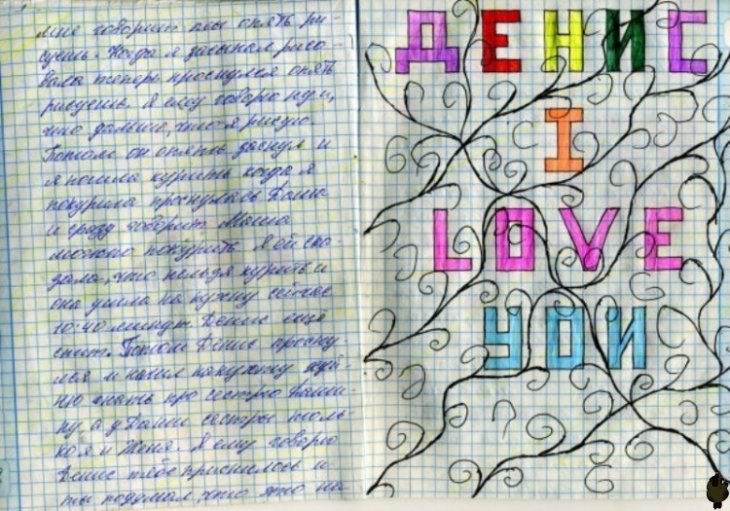 мне говорит ты опять ри-
суешь. Когда я засыпал рисо-
вала теперь проснулся опять
рисуешь. Я ему говорю ну и,
что дальше, что я рисую.
Потом он опять заснул и
я пошла курить когда я
покурила проснулась Даша
и сразу говорит Маша
можно покурить. Я ей ска-
зала, что нельзя курить и
она ушла на кухню сейчас
10:40 минут. Денис ещё
спит. Потом Денис просну-
лся и начал на кухню
знать про сестрю Даши-
ну а у Даши сестры толь-
ко я и Женя. Я ему говорю
Денис тебе приснилось и
ты подумал, что это на
ДЕНИС
I
LOVE
YOU